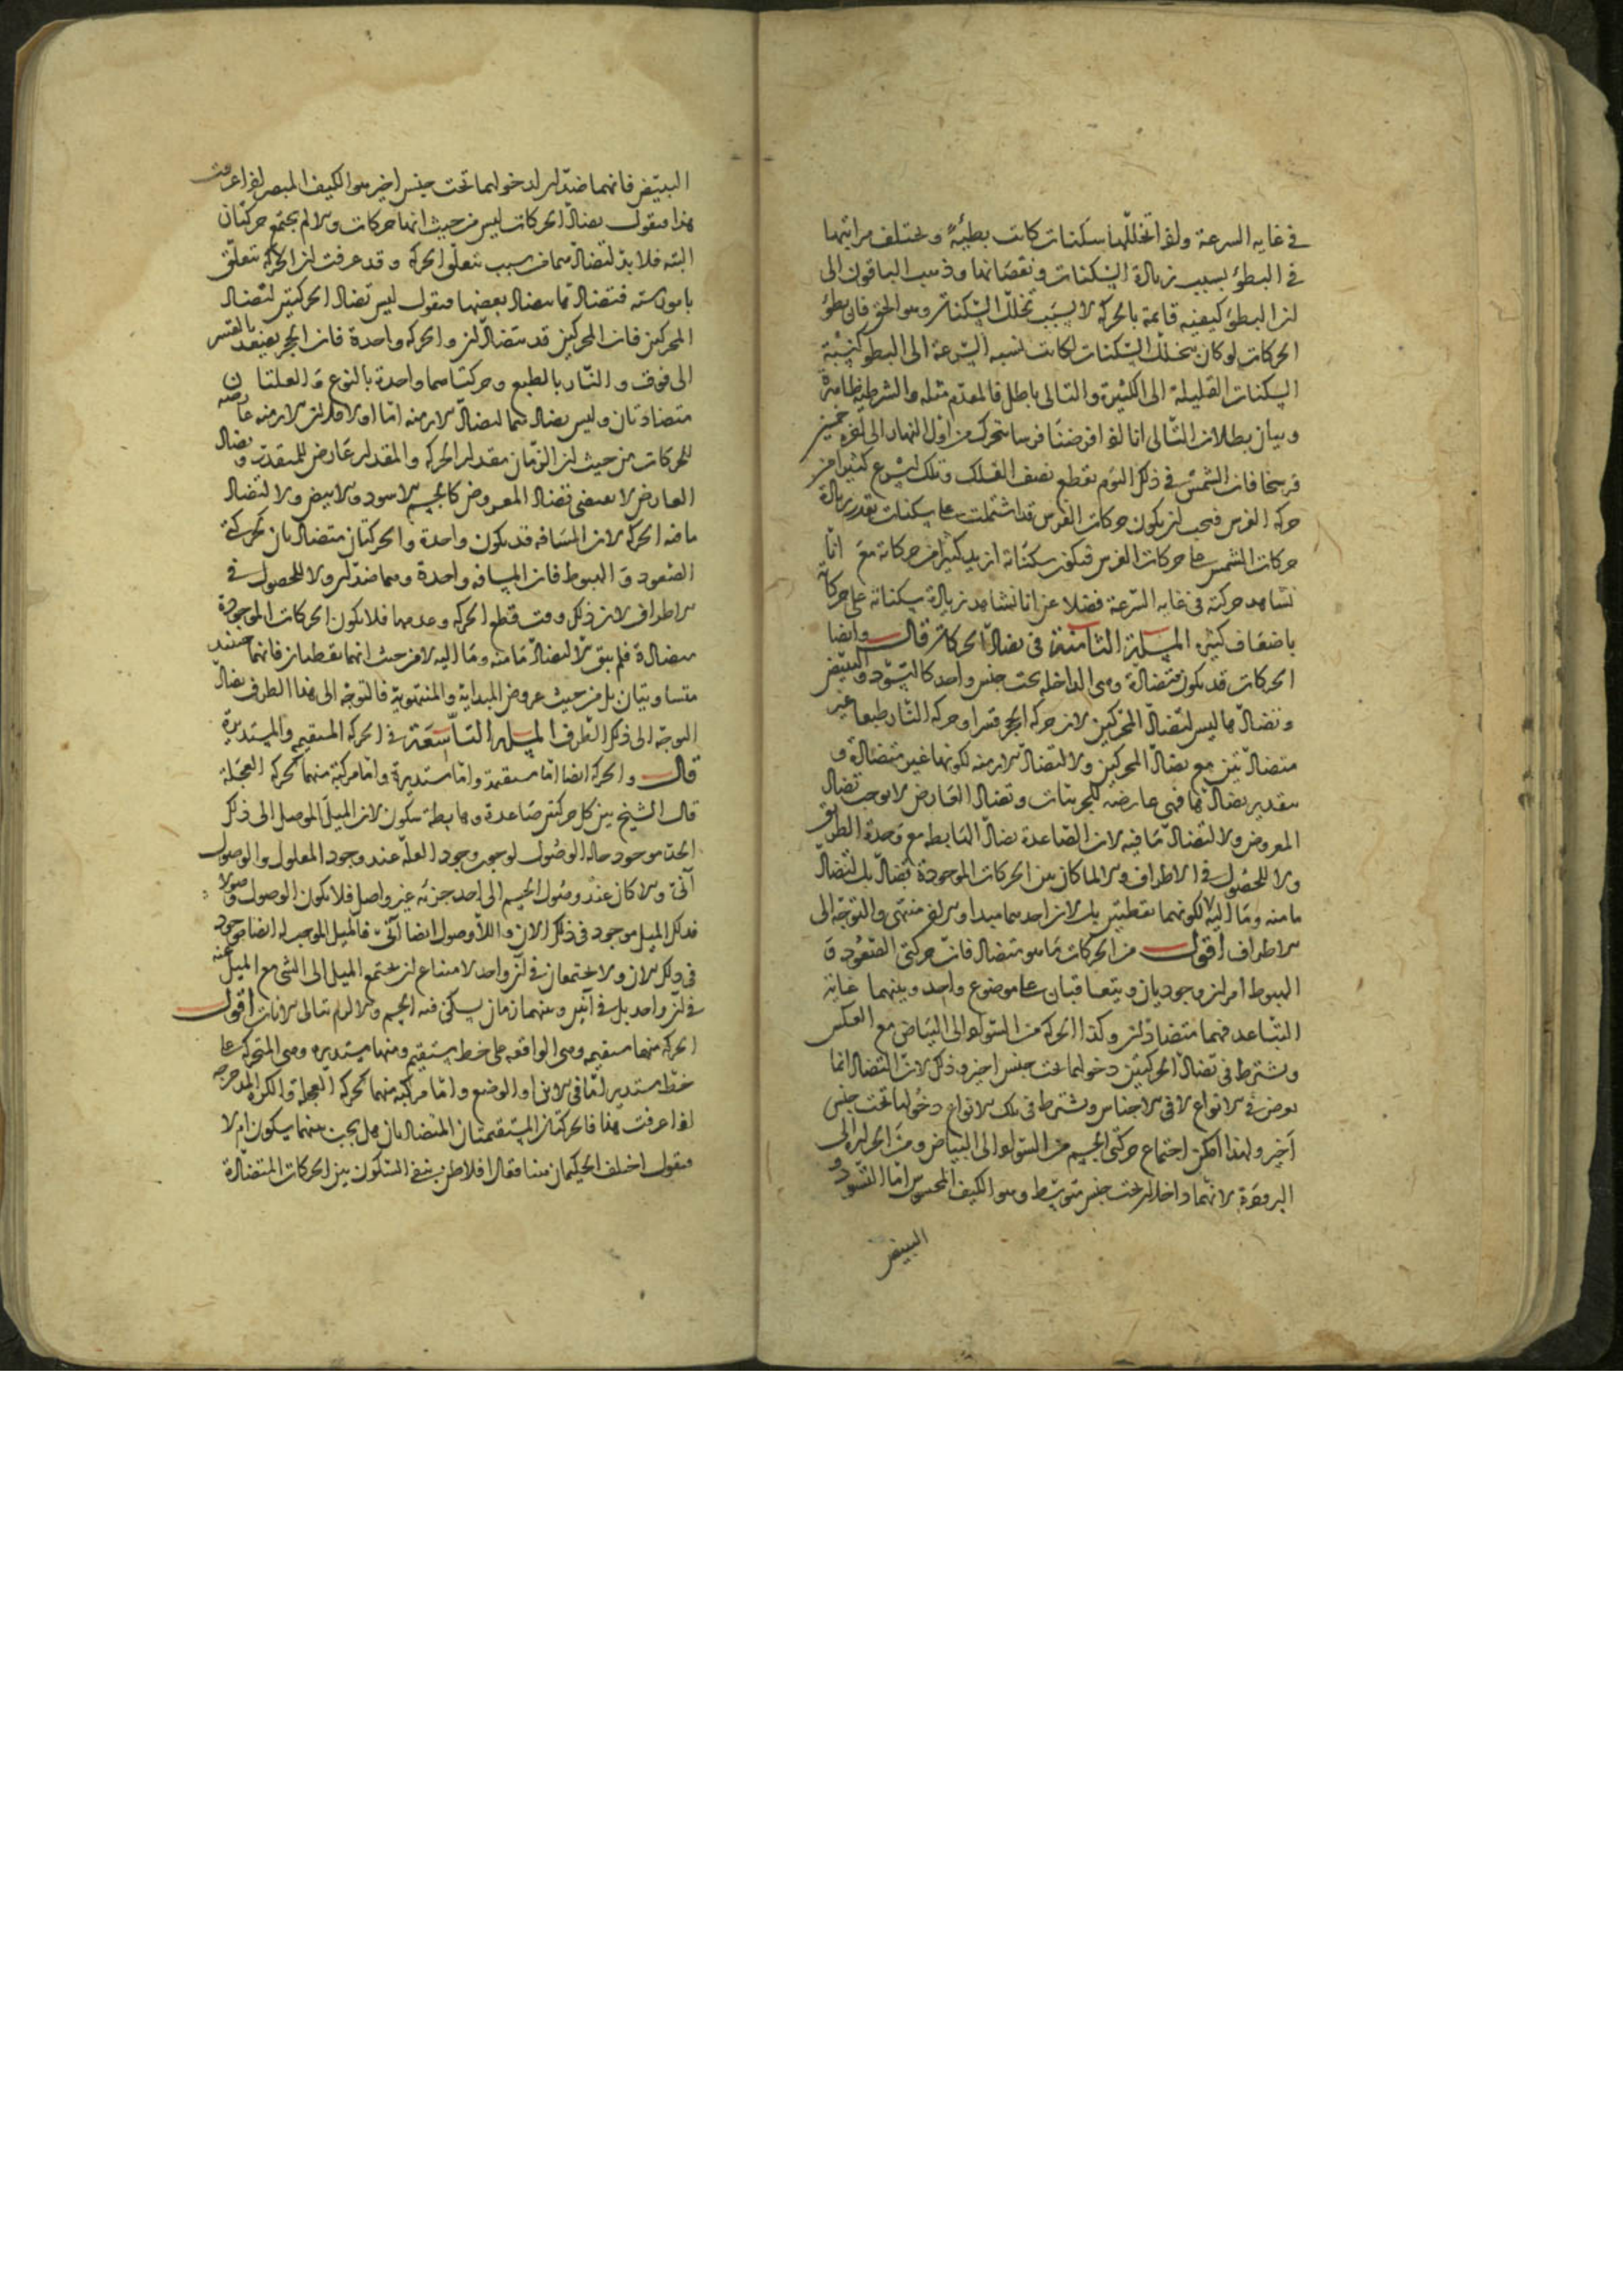 في غايه السرعة ولو اتخللها سكنات كانت بطيئة وتختلف مراتبها
في البطؤ بسبب زيادة السكنات ونقصانها وذهب الباقون الى
ان البطؤ كيفية قائمة بالحركة لا بسبب تخلل السكنات وهو الحق فان بطؤ
الحركات لو كان بتخلل السكنات لكانت نسبه السرعة الى البطؤ كنسبة
السكنات القليلة الى الكثيرة والتالى باطل فالمقدم مثله والشرطية ظاهرة
وبيان بطلان التالى انا لو افرضنا فرسا تحرك من اول النهار الى اخره خمسين
فرسخا فان الشمس في ذلك اليوم تقطع نصف الفلك وتلك اسرع كثيرا من
حركه الفرس فيجب ان يكون حركات الفرس قد اشتملت على سكنات بقدر زيادة
حركات الشمس على حركات الفرس فيكون سكناته ازيد كثيرا من حركاته مع انا
نشاهد حركته في غايه السرعة فضلا عن انا نشاهد زيادة سكناته على حركاته
باضعاف كثيره المسئلة الثامنة في تضاد الحركات قال وايضا
الحركات قد يكون متضادة وهى الداخله تحت جنس واحد كالتسود والتبيض
وتضادهما ليس لتضاد المحركين لان حركه الحجر قسرا وحركه النار طبعا غير
متضادتين مع تضاد المحركين ولا لتضاد الازمنه لكونها غير متضادة و
بتقدير تضادها فهى عارضه للحركات وتضاد العارض لا يوجب تضاد
المعروض ولا لتضاد ما فيه لان الصاعدة تضاد الهابطه مع وحدة الطريق
ولا للحصول في الاطراف والا لما كان بين الحركات الموجودة تضاد بل لتضاد
ما منه وما اليه لا لكونهما نقطتين بل لان احديهما مبدا والاخر منتهى والتوجه الى
الاطراف اقول من الحركات ما هو متضاد فان حركتى الصعود و
الهبوط امران وجوديان ويتعاقبان على موضوع واحد وبينهما غاية
التباعد فهما متضادان وكذا الحركة من السواد الى البياض مع العكس
ويشترط في تضاد الحركتين دخولهما تحت جنس اخير وذلك لان التضاد انما
يعرض في الانواع لا في الاجناس ويشترط في تلك الانواع دخولها تحت جنس
اخير ولهذا امكن اجتماع حركتى الجسم من السواد الى البياض ومن الحرارة الى
البرودة لانهما داخلان تحت جنس متوسط وهو الكيف المحسوس اما التسود و
التبيض
التبيض فانهما ضدان لدخولهما تحت جنس اخير هو الكيف المبصر اذا عرفت
هذا فنقول تضاد الحركات ليس من حيث انها حركات والا لم يجتمع حركتان
البته فلا بد لتضادهما من سبب بتعلق الحركه وقد عرفت ان الحركه تتعلق
بامور سته فتضادها بتضاد بعضها فنقول ليس تضاد الحركتين لتضاد
المحركين فان المحركين قد يتضادان والحركه واحدة فان الحجر يصعد بالقسر
الى فوق والنار بالطبع وحركتاهما واحدة بالنوع والعلتان
متضادتان وليس تضادهما لتضاد الازمنه اما اولا فلان الازمنه عارضه
للحركات من حيث ان الزمان مقدار الحركه والمقدار عارض للمتقدر وتضاد
العارض لا يقتضى تضاد المعروض كالجسم الاسود والابيض ولا لتضاد
ما فيه الحركة لان المسافه قد يكون واحدة والحركتان متضادتان كحركتى
الصعود والهبوط فان المسافه واحدة وهما ضدان ولا للحصول في
الاطراف لان ذلك وقت قطع الحركه وعدمها فلا تكون الحركات الموجودة
متضادة فلم يبق الا لتضاد ما منه وما اليه لا من حيث انهما نقطتان فانهما حينئذ
متساويتان بل من حيث عروض المبدايه والمنتهويه فالتوجه الى هذا الطرف يضاد
التوجه الى ذلك الطرف المسئله التاسعة في الحركه المستقيمه والمستديرة
قال والحركه ايضا اما مستقيمة واما مستديرة واما مركبة منهما كحركه العجلة
قال الشيخ بين كل حركتين صاعدة وهابطة سكون لان الميل الموصل الى ذلك
الحد موجود حاله الوصول لوجوب وجود العله عند وجود المعلول والوصول
آنى والا كان عند وصول الجسم الى احد جزئه غير واصل فلا يكون الوصول وصولا
فذلك الميل موجود في ذلك الان واللاوصول ايضا آنى فالميل الموجب له ايضا موجود
في ذلك الان ولا يجتمعان في آن واحد لامتناع ان يجتمع الميل الى الشى مع الميل عنه
في ان واحد بل في آنين وبينهما زمان يسكن فيه الجسم والا لزم تتالى الانات اقول
الحركه منها مستقيمه وهى الواقعه على خط مستقيم ومنها مستديره وهى المتحركه على
خط مستدير اما في الاين او الوضع واما مركبة منهما كحركه العجلة والكره المدحرجه
اذا عرفت هذا فالحركتان المستقيمتان المتضادتان هل يجب بينهما سكون ام لا
فنقول اختلف الحكيمان هنا فقال افلاطن بنفى السكون بين الحركات المتضادة